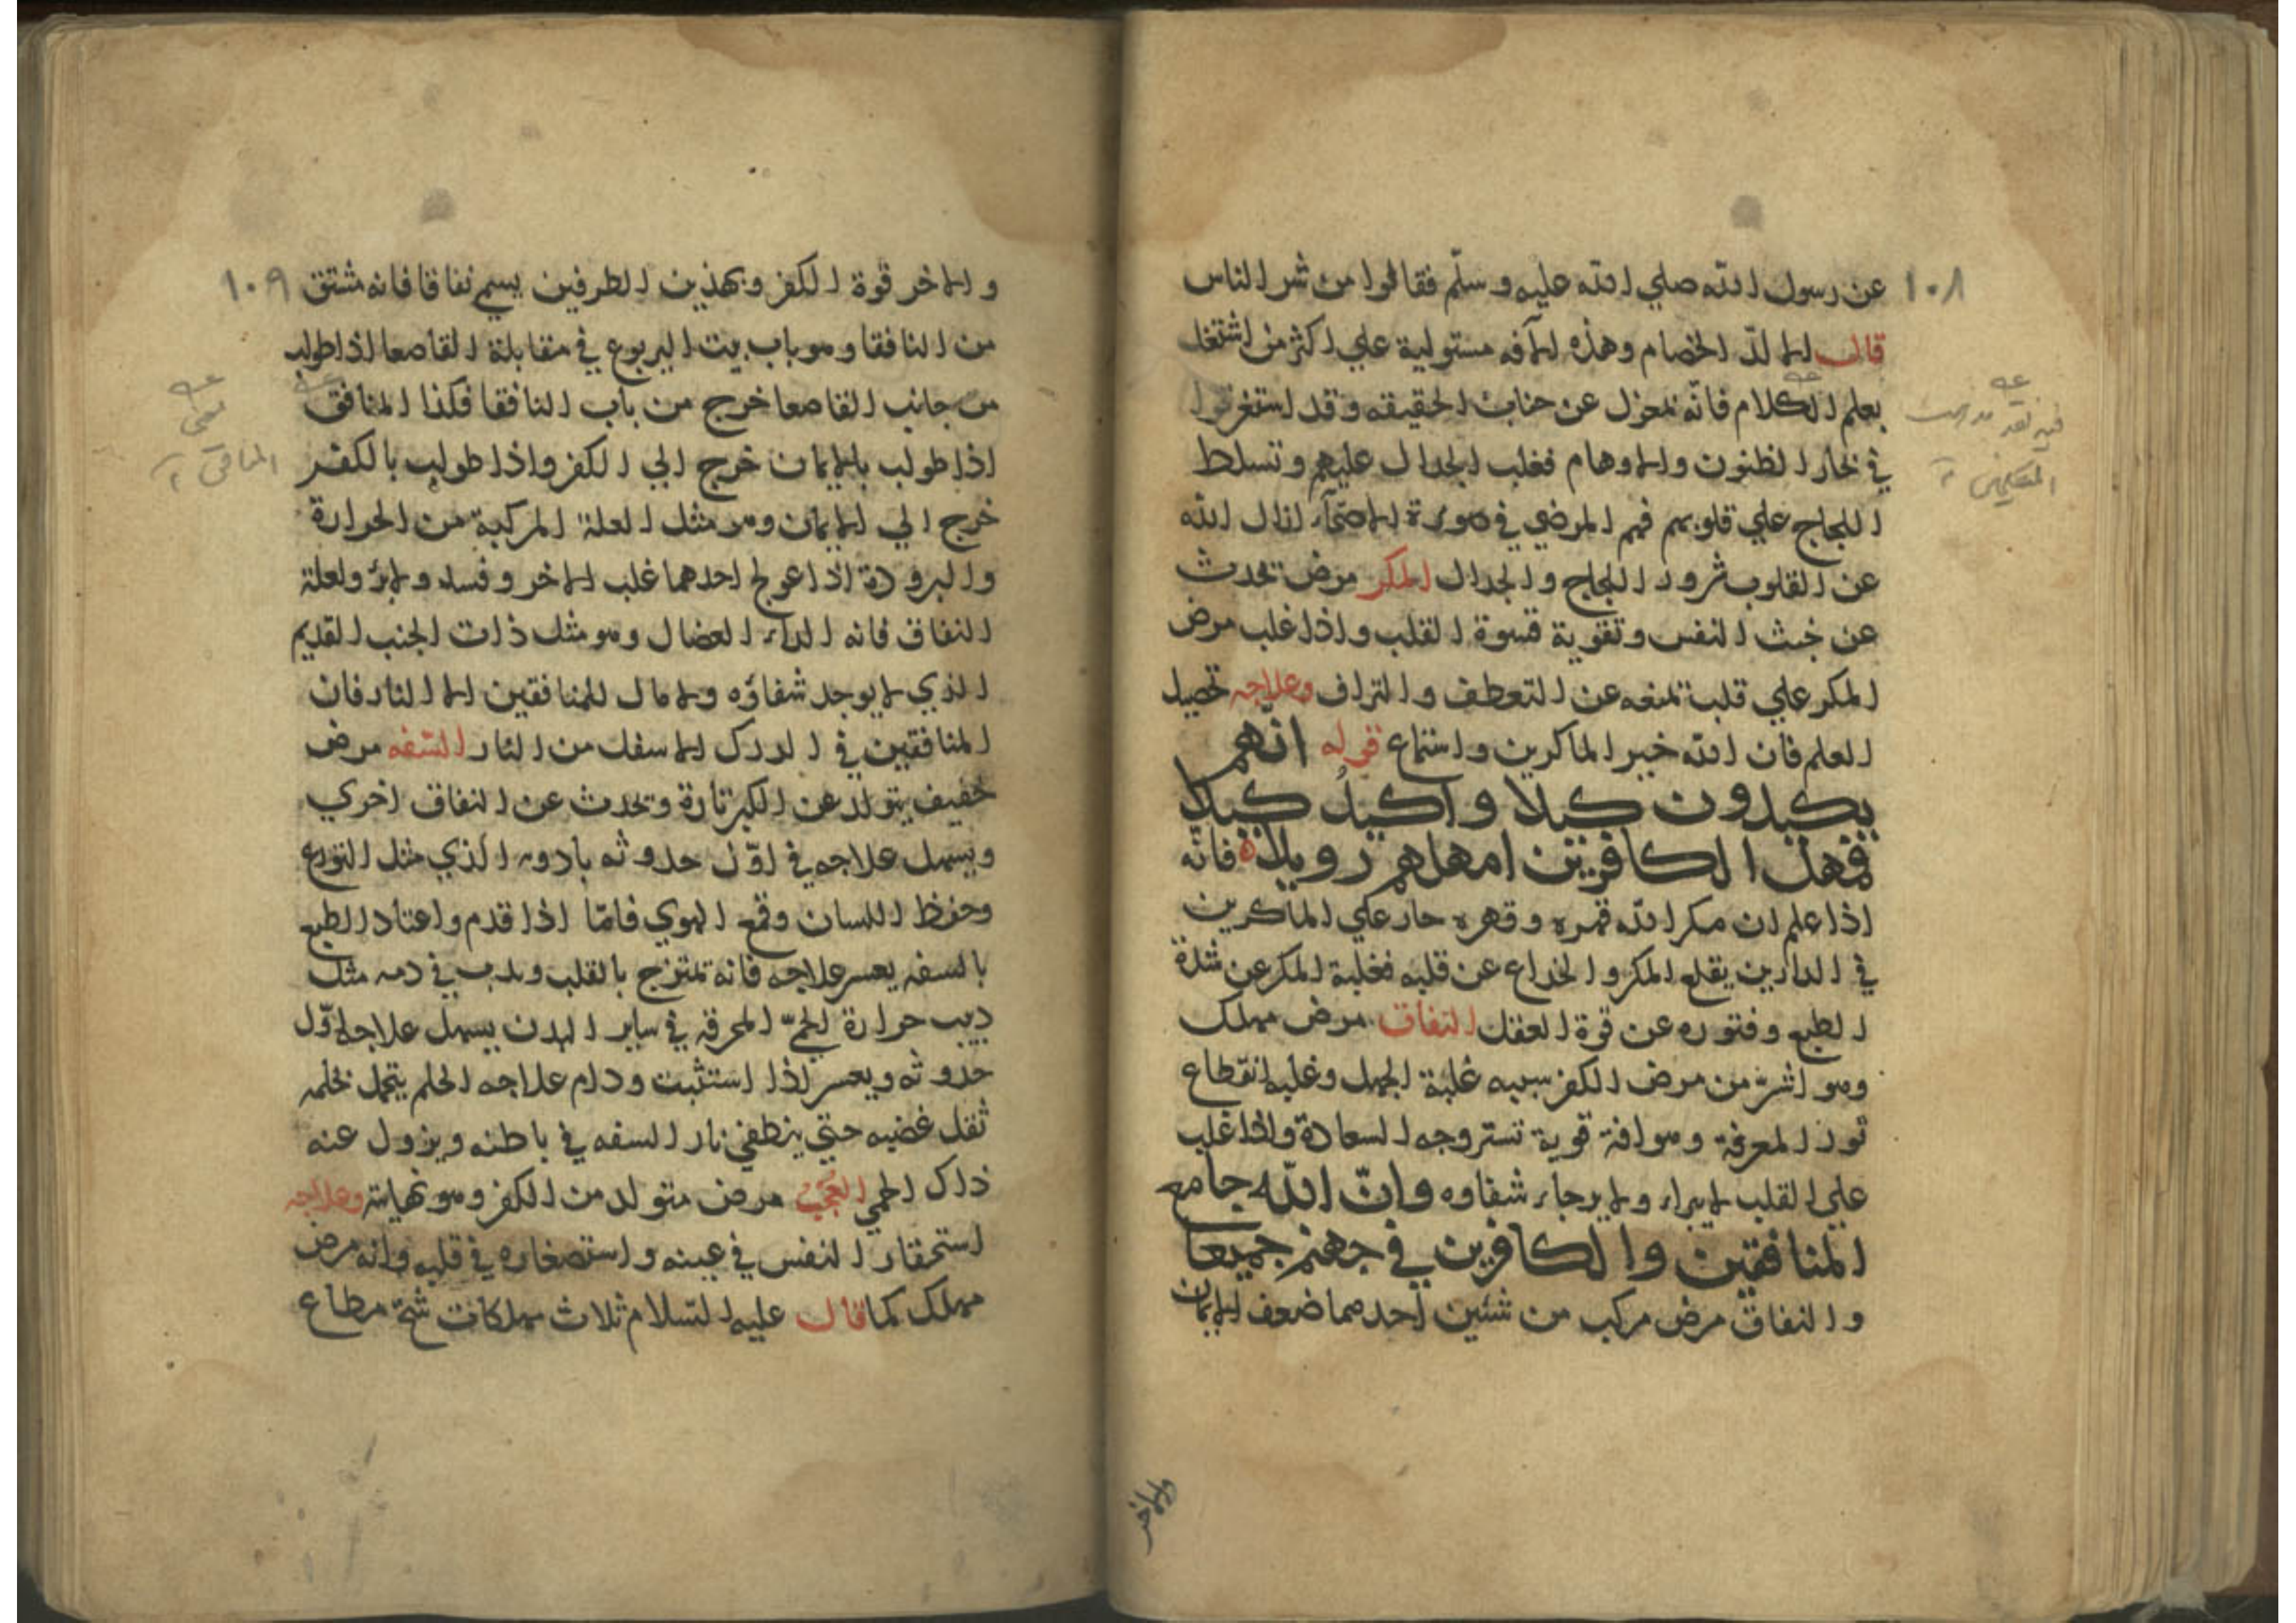 ١٠٨
عن رسول الله صلي الله عليه وسلّم فقالوا من شر الناس
قال الالدّ الخصام وهذه الآفه مستولية علي اكثر من اشتغل
بعلم الكلام فانّه بمعزل عن جناب الحقيقه وقد استغرقوا
في بحار الظنون والاوهام فغلب الجدال عليهم وتسلط
اللجاج علي قلوبهم فهم المرضي في صورة الاصحّاء ازال الله
عن القلوب شرور اللجاج والجدال المكر مرض تحدث
عن خبث النفس وتقوية قسوة القلب واذا غلب مرض
المكر علي قلب تمنعه عن التعطف والتراف وعلاجه تحصيل
العلم فان الله خير الماكرين واستماع قوله انهم
يكيدون كيدا واكيدُ كيدا
فمهل الكافرين امهلهم رويدا فانّه
اذا علم ان مكر الله قهره وقهره حار علي الماكرين
في الدارين يقلع المكر والخداع عن قلبه فغلبة المكر عن شدة
الطبع وفتوره عن قوة العقل النفاق مرض مهلك
وهو اشرّ من مرض الكفر سببه غلبة الجهل وغلبه انقطاع
نور المعرفة وهو افة قوية تستر وجه السعادة واذا غلب
علي القلب لا يبراء ولا يرجاء شفاوه وانّ الله جامع
المنافقين والكافرين في جهنم جميعا
والنفاق مرض مركب من شئين احدهما ضعف الايمان
والاخر
فيه نقد
المتكلمين
١٠٩
والاخر قوة الكفر وبهذين الطرفين يسمي نفاقا فانه مشتق
من النافقا وهو باب بيت اليربوع في مقابلة القاصعا اذا طولب
من جانب القاصعا خرج من باب النافقا فكذا المنافق
اذا طولب بالايمان خرج الي الكفر واذا طولب بالكفر
خرج الي الايمان وهو مثل العلة المركبة من الحرارة
والبرودة اذا عولج احدهما غلب الاخر وفساد ولعلة
النفاق فانه الداء العضال وهو مثل ذات الجنب القديم
الذي لا يوجد شفاؤه ولا مال للمنافقين الا النار فان
المنافقين في الدرك الاسفل من النار السّفه مرض
خفيف يتولد عن الكبر تارة وتحدث عن النفاق اخري
ويسهل علاجه في اوّل حدوثه بادويه الذي مثل التورع
وحفظ اللسان وقمع الهوي فامّا اذا قدم واعتاد الطبع
بالسفه يعسر علاجه فانه تمتزج بالقلب ويدب في دمه مثل
دبيب حرارة الحمّي المحرقه في ساير البدن يسهل علاجه اوّل
حدوثه ويعسر اذا استثبت ودام علاجه الحلم يتحمل بحلمه
ثقل غضبه حتي ينطفي نار السفه في باطنه ويزول عنه
ذلك الحمي العُجب مرض متولد من الكفر وهو نهايته وعلاجه
استحقار النفس في عينه واستصغاره في قلبه وانه مرض
مهلك كما قال عليه السّلام ثلاث مهلكات شحّ مطاع
معنى
المنافق